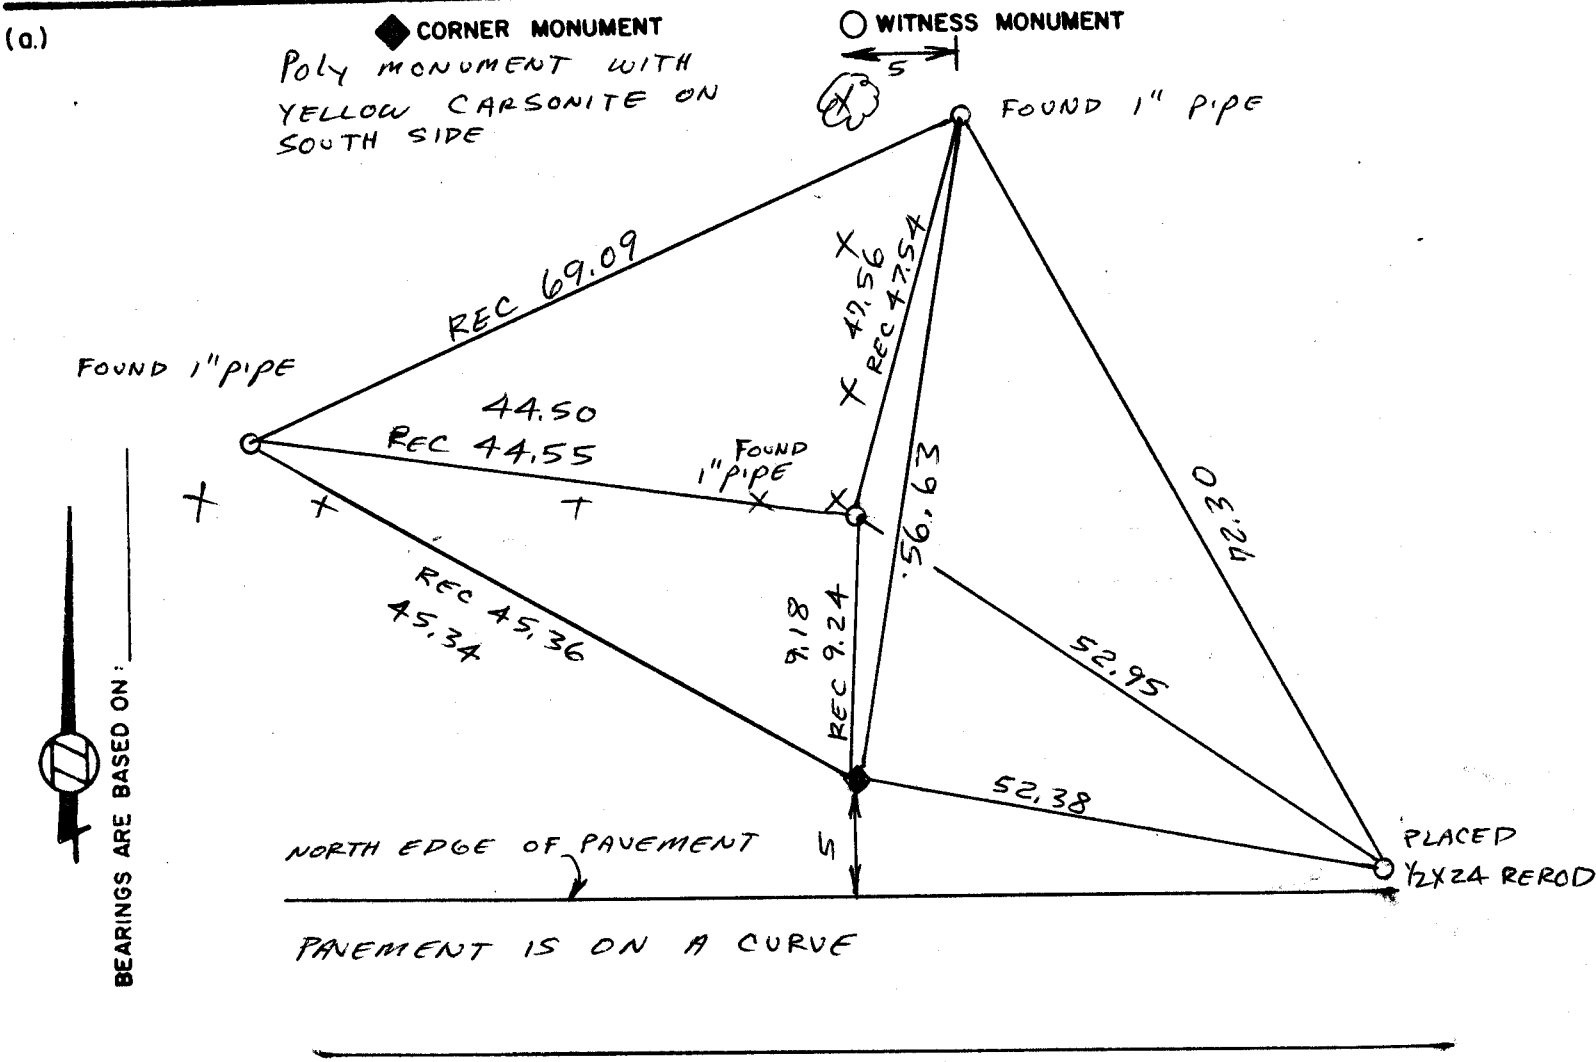 (a.)
CORNER MONUMENT
WITNESS MONUMENT
Poly MONUMENT WITH
YELLOW CARSONITE ON
SOUTH SIDE
5
FOUND 1" PIPE
REC 69.09
47.56
REC 47.54
FOUND 1" PIPE
44.50
REC 44.55
FOUND
1" PIPE
56.63
72.30
REC 45.36
45.34
9.18
REC 9.24
52.95
52.38
BEARINGS ARE BASED ON:
NORTH EDGE OF PAVEMENT
5
PLACED
1/2X24 REROD
PAVEMENT IS ON A CURVE